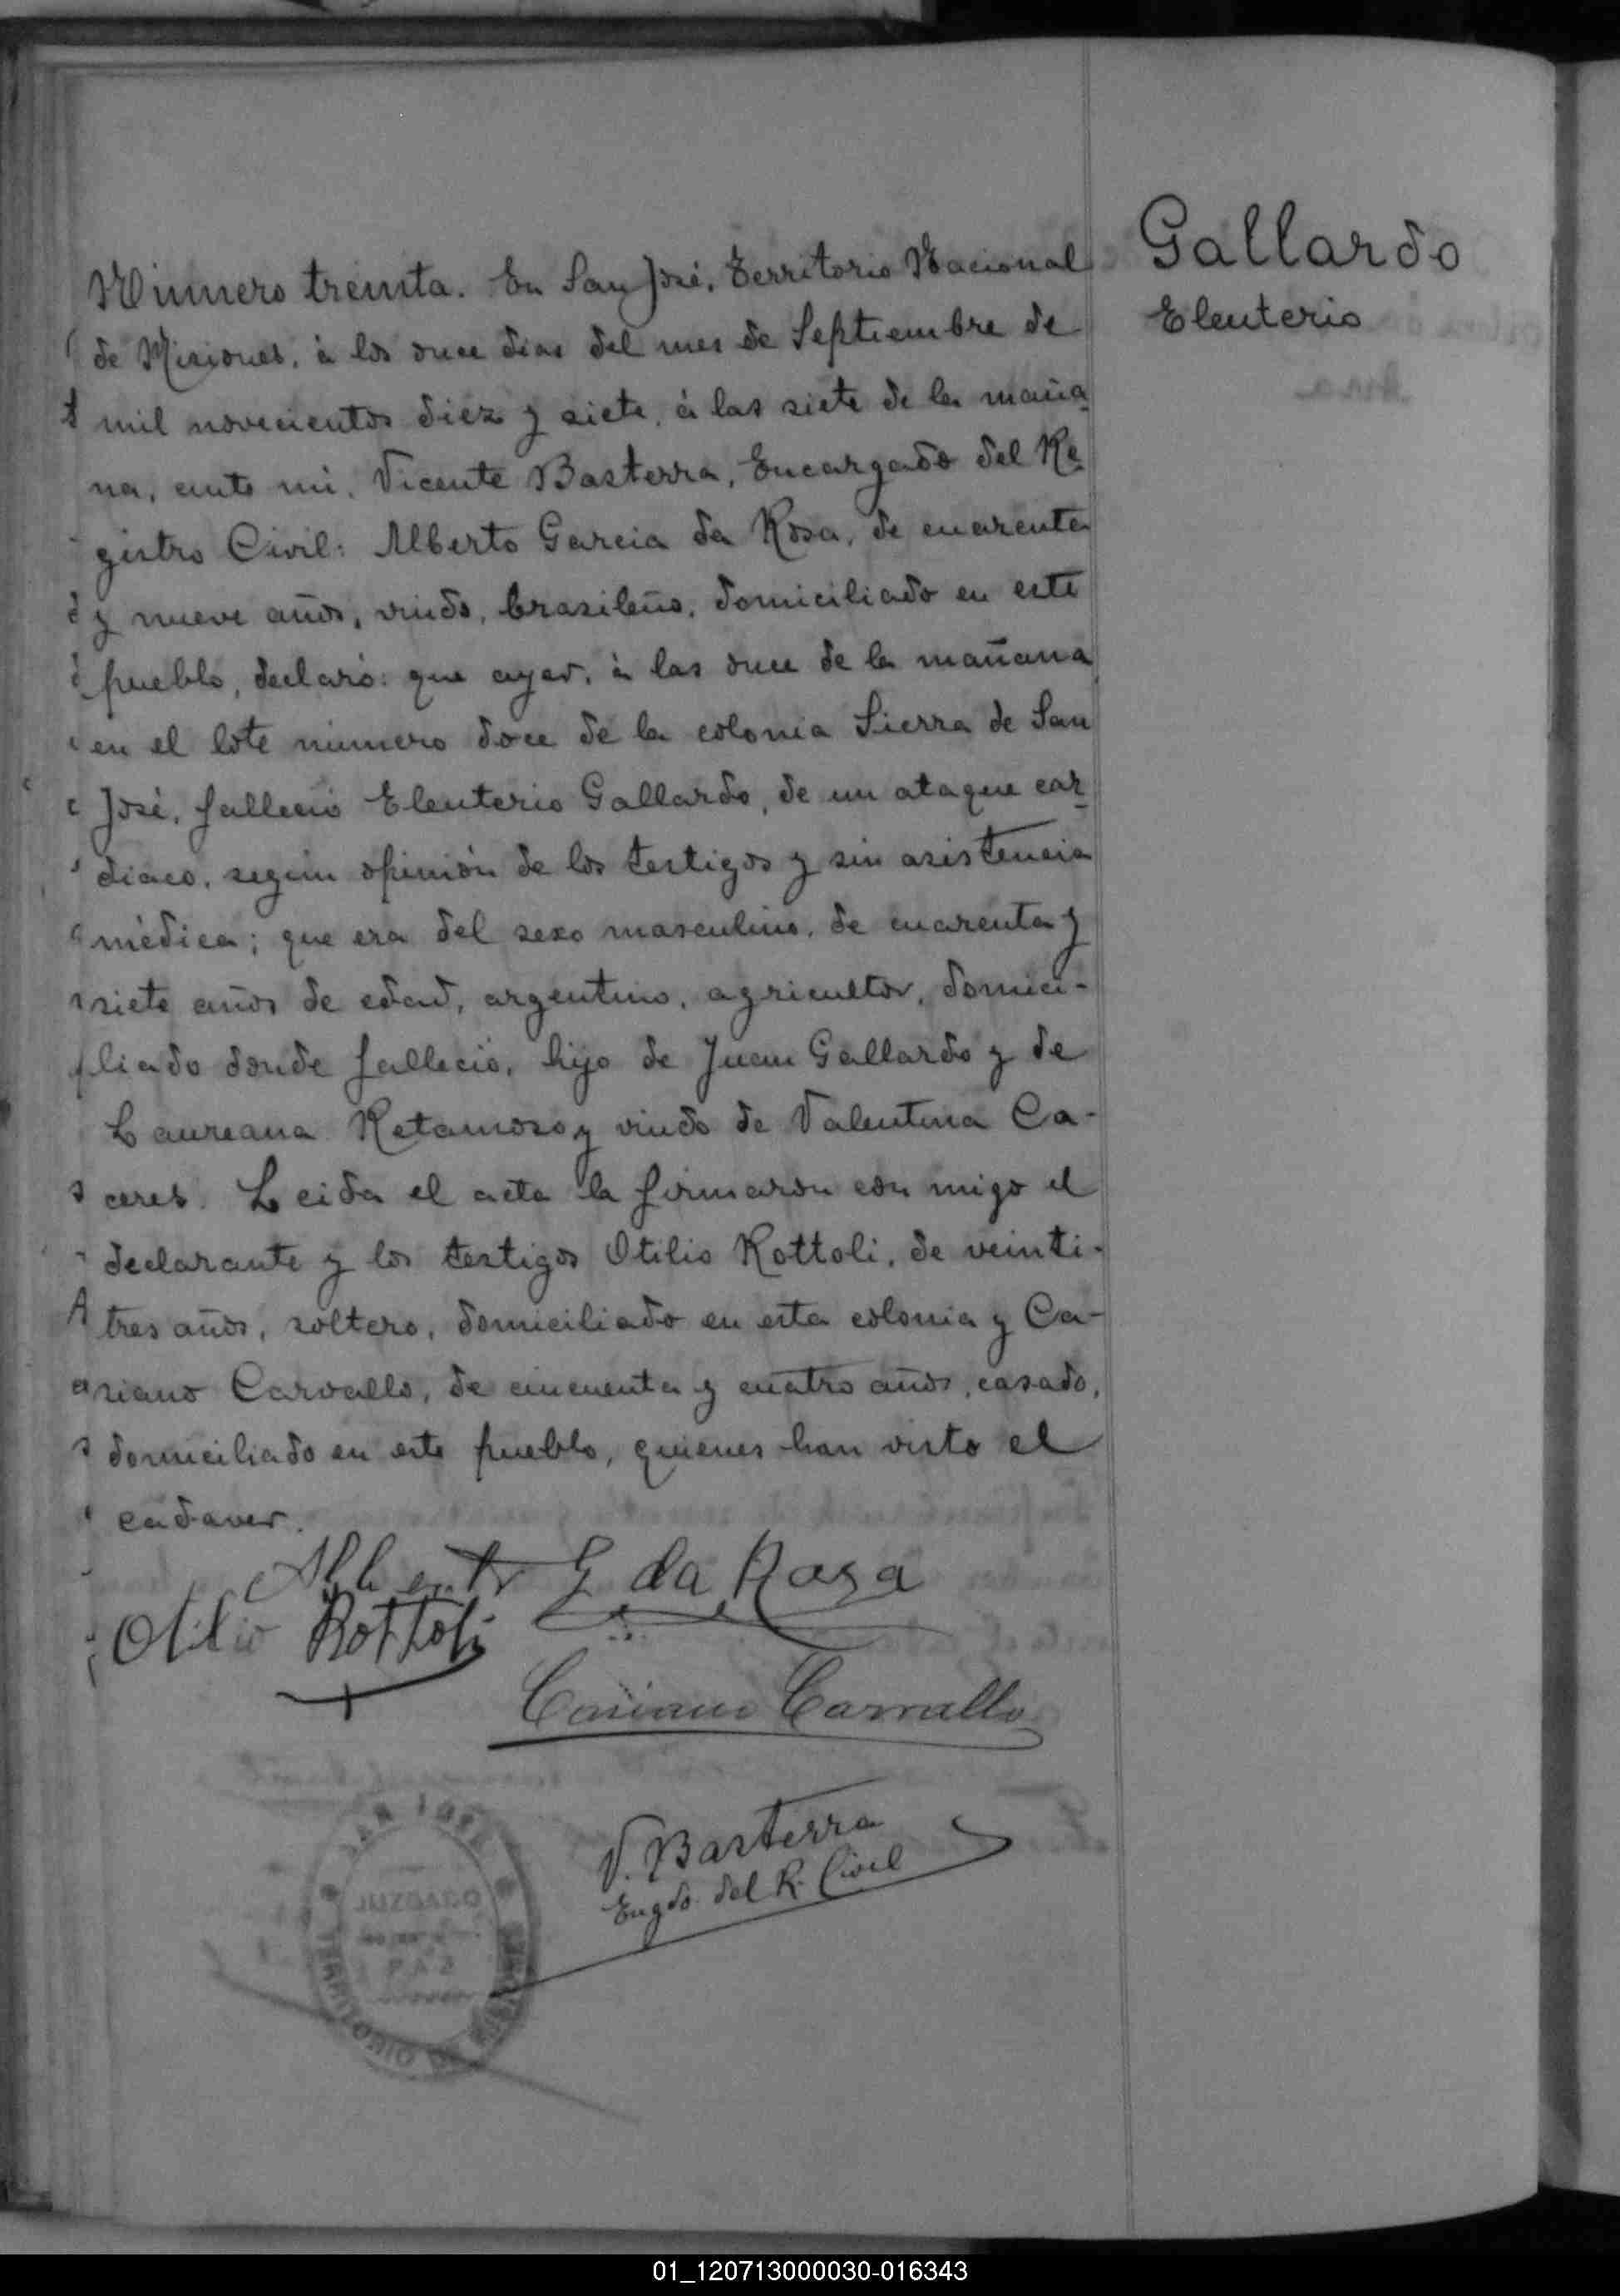 Gallardo
Eleuterio
Número treinta. En San José, Territorio Nacional
de Misiones, à los once dias del mes de Septiembre de
mil novecientos diez y siete, à las siete de la maña
na, ante mi, Vicente Basterra, Encargado del Re
gistro Civil: Alberto Garcia da Rosa, de cuarenta
y nueve años, viudo, brasileño, domiciliado en este
pueblo, declaró: que ayer, à las once de la mañana
en el lote número doce de la colonia Sierra de San
José, falleció Eleuterio Gallardo, de un ataque car
diaco, según opinión de los testigos y sin asistencia
mèdica; que era del sexo masculino, de cuarenta y
siete años de edad, argentino, agricultor, domici-
liado donde falleció, hijo de Juan Gallardo y de
Laureana Retamoso y viudo de Valentina Ca-
ceres. Leida el acta la firmaron con migo el
declarante y los testigos Otilio Rottoli, de veinti-
tres años, soltero, domiciliado en esta colonia y Ca-
siano Carvallo, de cincuenta y cuatro años, casado,
domiciliado en este pueblo, quienes han visto el
cadaver.
Alberto G da Rosa
Otilio Rottoli
Casiano Carvallo
V. Basterra
Engdo. del R. Civil
SAN JOSE
JUZGADO
PAZ
TERRITORIO DE MISIONES
01_120713000030-016343